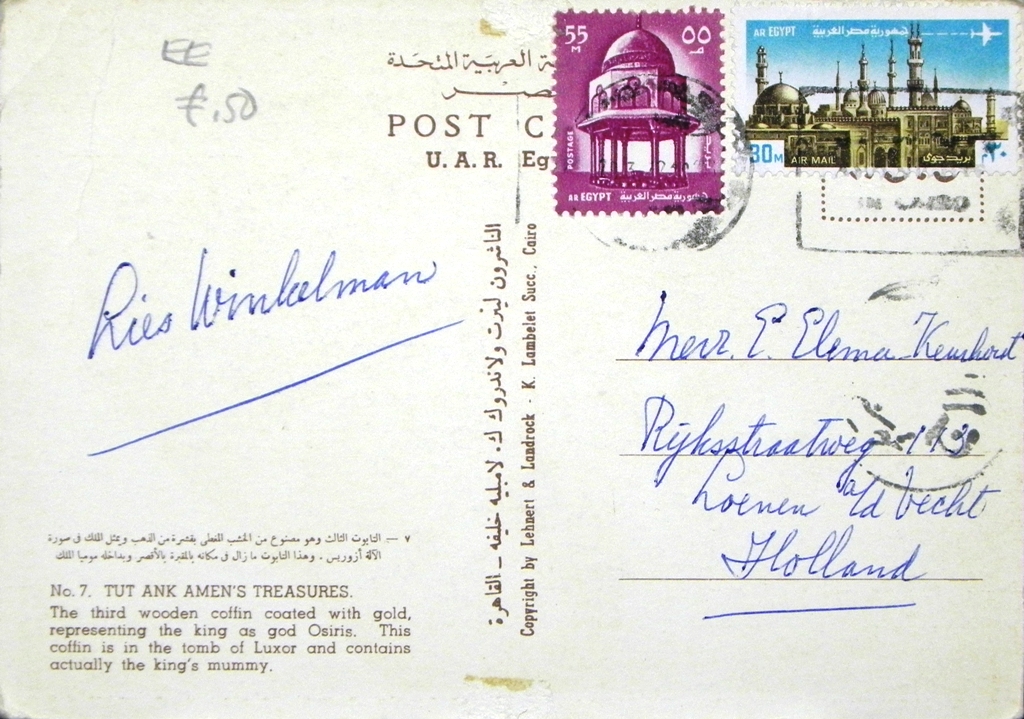 EE
£.50
ة العربية المتحدة
ـصر
POST C
U. A. R. Eg
55
M
٥٥
م
POSTAGE
AR EGYPT جمهورية مصر العربية
AR EGYPT جمهورية مصر العربية
30M AIR MAIL بريد جوى ٣٠م
Ries Winkelman
الناشرون لينرت ولاندروك ك. لامبليه خليفه - القاهرة
Copyright by Lehnert & Landrock - K. Lambelet Succ., Cairo
Mevr. E. Elema
Rijksstraatweg 113
Loenen a/d Vecht
Holland
٧ — التابوت الثالث وهو مصنوع من الخشب المغطى بقشرة من الذهب ويمثل الملك فى صورة
الآلة أزوريس . وهذا التابوت ما زال فى مكانه بالمقبرة بالأقصر وبداخله موميا الملك
No. 7. TUT ANK AMEN'S TREASURES.
The third wooden coffin coated with gold,
representing the king as god Osiris. This
coffin is in the tomb of Luxor and contains
actually the king's mummy.